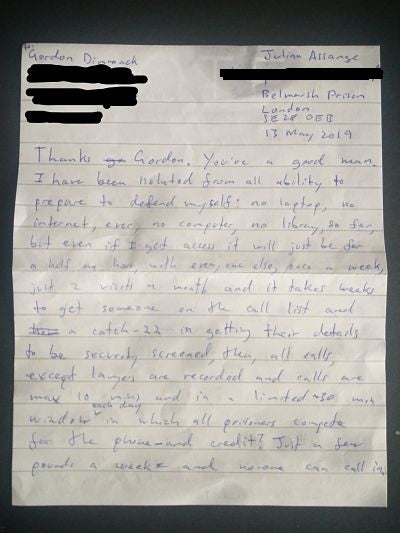 to Gordon Dimmack
Julian Assange
Belmarsh Prison
London
SE28 0EB
13 May 2019
Thanks Gordon. You're a good man.
I have been isolated from all ability to
prepare to defend myself: no laptop, no
internet, ever, no computer, no library, so far,
but even if I get access it will just be for
a half an hour, with everyone else, once a week,
just 2 visits a month and it takes weeks
to get someone on the call list and
a catch-22 in getting their details
to be security screened, then, all calls,
except lawyer are recorded and calls are
max 10 mins and in a limited ~30 min
each day
window in which all prisoners compete
for the phone—and credit? Just a few
pounds a week and no-one can call in.